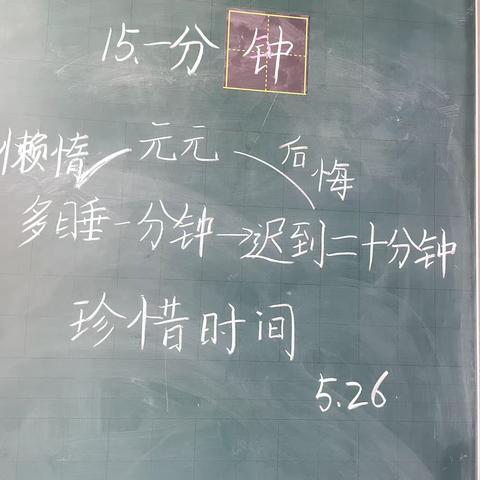 15.一分钟
懒惰 元元 后悔
多睡一分钟→迟到二十分钟
珍惜时间
5.26